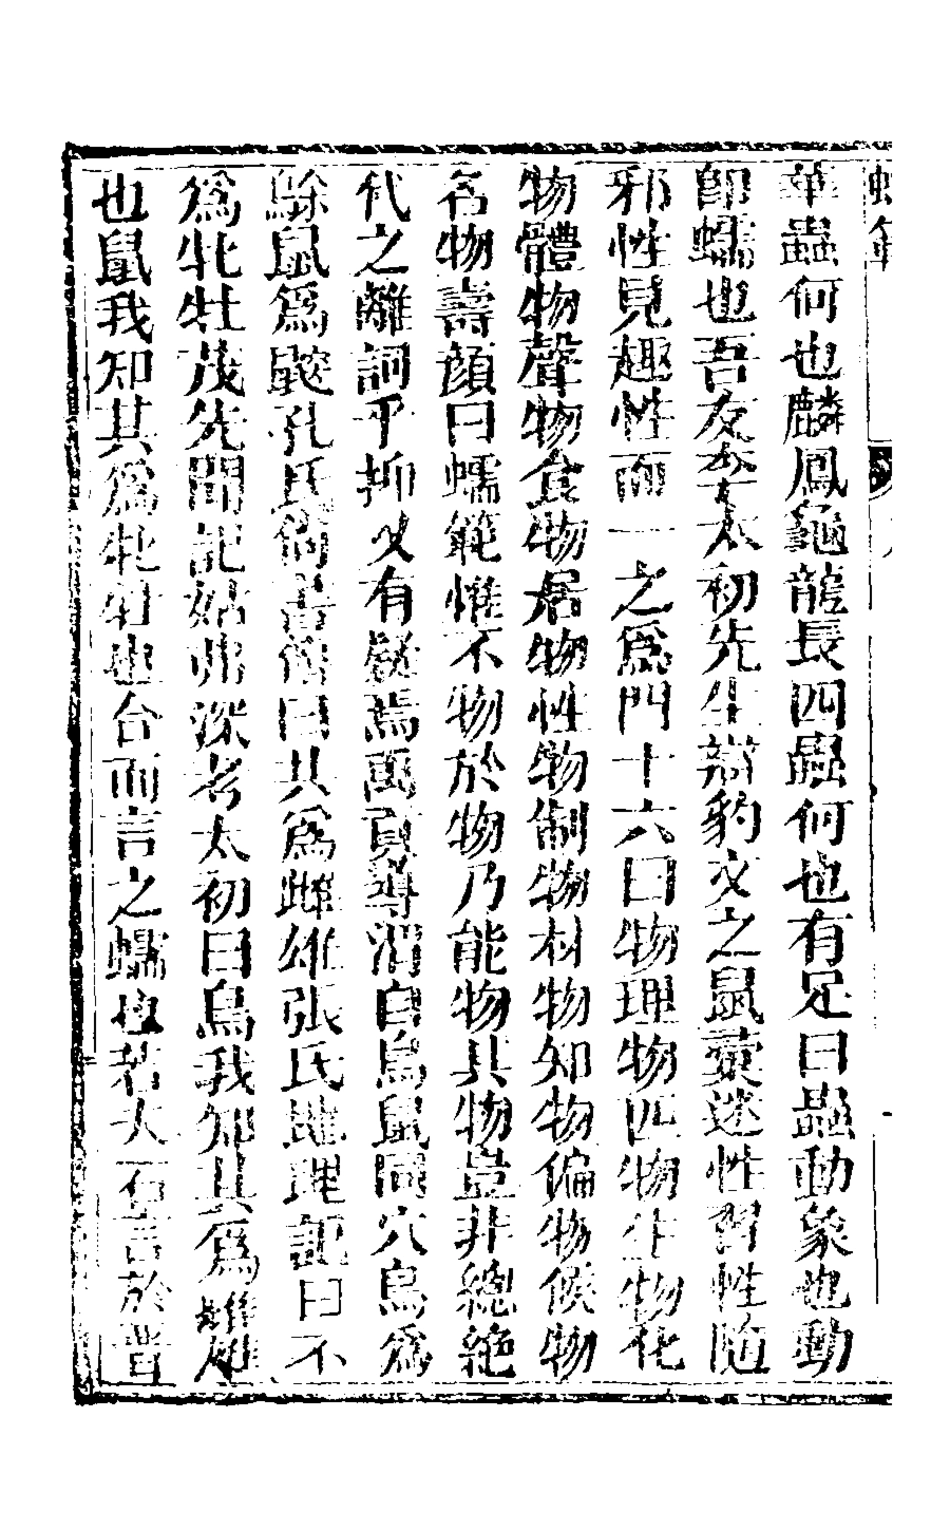 華蟲何也麟鳳龜龍長四蟲何也有足曰蟲動象也動
即蠕也吾友李太初先生辯豹文之鼠彙迷性習性隨
邪性見趣性而一之爲門十六曰物理物匹物生物化
物體物聲物食物居物性物制物材物知物偏物候物
名物壽顔曰蠕範惟不物於物乃能物其物豈非總絶
代之離詞乎抑又有疑焉禹貢導渭自鳥鼠同穴鳥爲
鵌鼠爲鼵孔氏尚書傳曰共爲雌雄張氏地理記曰不
爲牝牡茂先聞記姑弗深考太初曰鳥我知其爲雄雌
也鼠我知其爲牝牡也合而言之蠕也若夫石言於晉